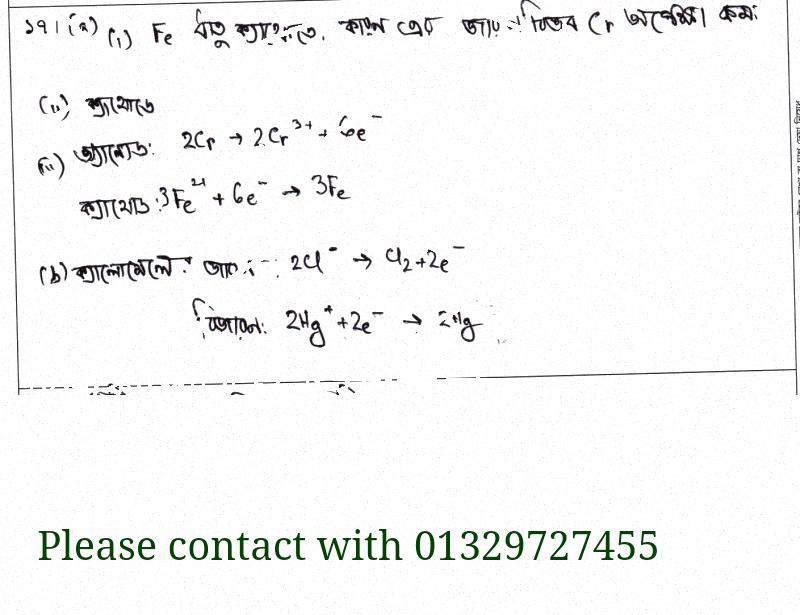 ১৭। (a) (i) Fe ধাতু কারণ এর Cr অপেক্ষা কম।
(ii) ক্যাথোডে
(iii) অ্যানোড: 2Cr → 2Cr³⁺ + 6e⁻
ক্যাথোড: 3Fe²⁺ + 6e⁻ → 3Fe
(b) ক্যালোমেলে 2Cl⁻ → Cl₂ + 2e⁻
বিজারণ: 2Hg⁺ + 2e⁻ → 2Hg
Please contact with 01329727455